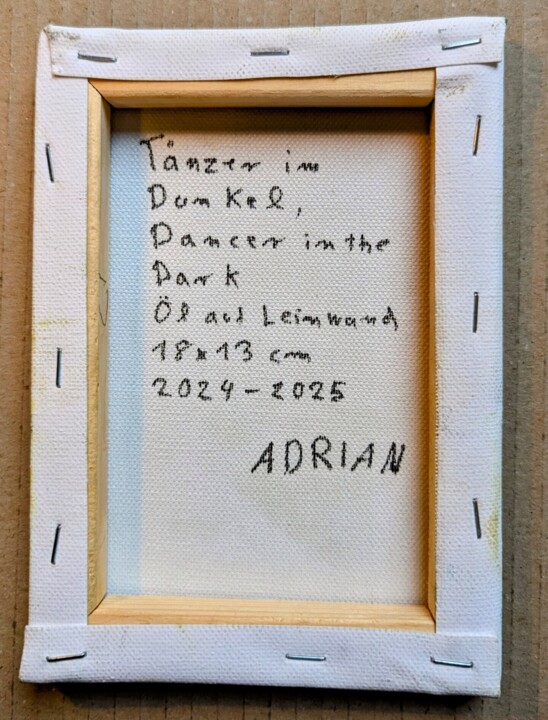 Tänzer im
Dunkel,
Dancer in the
Dark
Öl auf Leinwand
18x13 cm
2024-2025
ADRIAN